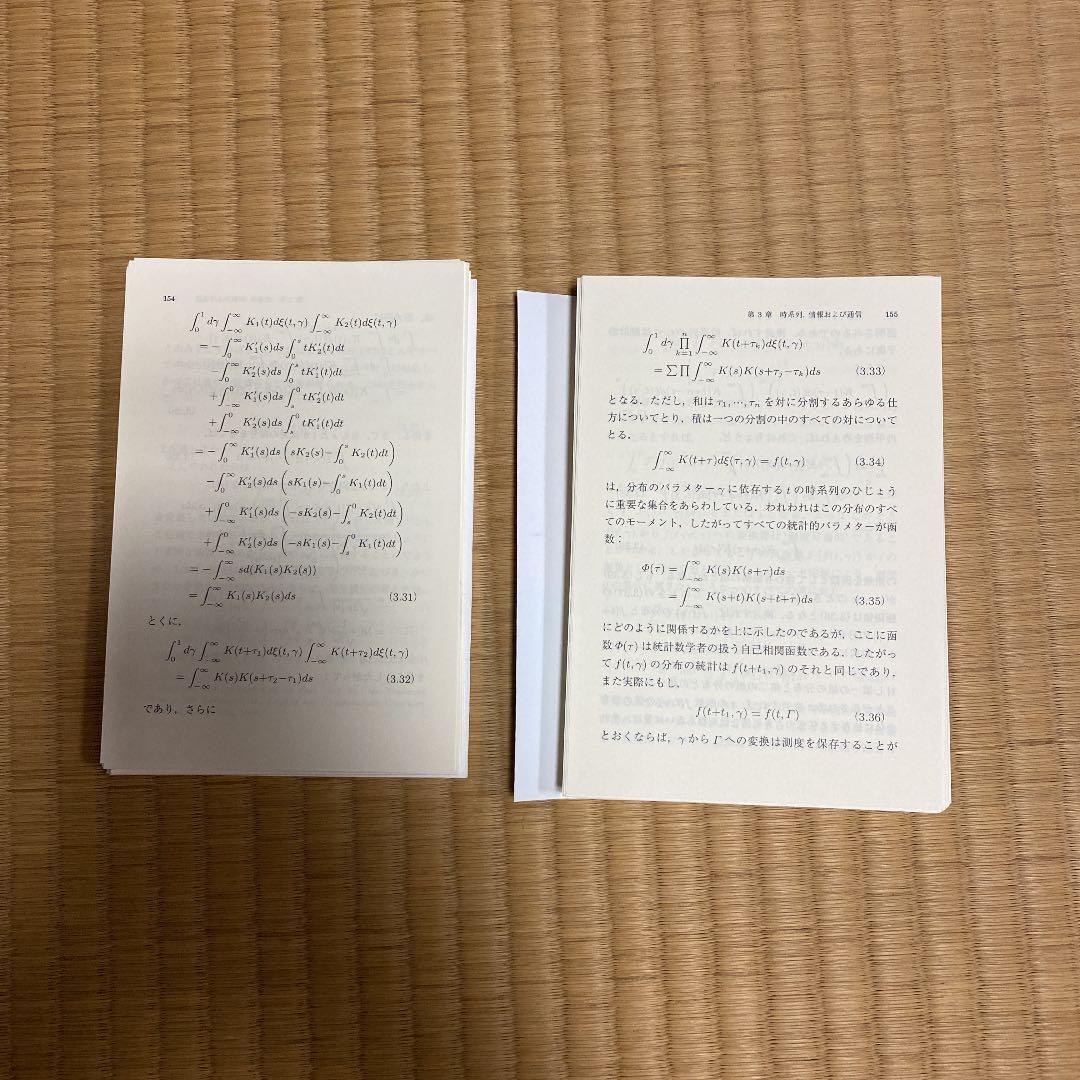 154
∫₀¹ dγ ∫₋∞^∞ K₁(t)dξ(t,γ) ∫₋∞^∞ K₂(t)dξ(t,γ)
= −∫₀^∞ K₁′(s)ds ∫₀^s tK₂′(t)dt
−∫₀^∞ K₂′(s)ds ∫₀^s tK₁′(t)dt
+∫₋∞^0 K₁′(s)ds ∫ₛ^0 tK₂′(t)dt
+∫₋∞^0 K₂′(s)ds ∫ₛ^0 tK₁′(t)dt
= −∫₀^∞ K₁′(s)ds (sK₂(s)−∫₀^s K₂(t)dt)
−∫₀^∞ K₂′(s)ds (sK₁(s)−∫₀^s K₁(t)dt)
+∫₋∞^0 K₁′(s)ds (−sK₂(s)−∫ₛ^0 K₂(t)dt)
+∫₋∞^0 K₂′(s)ds (−sK₁(s)−∫ₛ^0 K₁(t)dt)
= −∫₋∞^∞ sd(K₁(s)K₂(s))
= ∫₋∞^∞ K₁(s)K₂(s)ds (3.31)
とくに,
∫₀¹ dγ ∫₋∞^∞ K(t+τ₁)dξ(t,γ) ∫₋∞^∞ K(t+τ₂)dξ(t,γ)
= ∫₋∞^∞ K(s)K(s+τ₂−τ₁)ds (3.32)
であり, さらに
第3章 時系列, 情報および通信 155
∫₀¹ dγ ∏ₖ₌₁ⁿ ∫₋∞^∞ K(t+τₖ)dξ(t,γ)
= ∑∏∫₋∞^∞ K(s)K(s+τⱼ−τₖ)ds (3.33)
となる. ただし, 和は τ₁,⋯,τₙ を対に分割するあらゆる仕
方についてとり, 積は一つの分割の中のすべての対について
とる.
∫₋∞^∞ K(t+τ)dξ(τ,γ) = f(t,γ) (3.34)
は, 分布のパラメター γ に依存する t の時系列のひじょう
に重要な集合をあらわしている. われわれはこの分布のすべ
てのモーメント, したがってすべての統計的パラメターが函
数:
Φ(τ) = ∫₋∞^∞ K(s)K(s+τ)ds
= ∫₋∞^∞ K(s+t)K(s+t+τ)ds (3.35)
にどのように関係するかを上に示したのであるが, ここに函
数 Φ(τ) は統計数学者の扱う自己相関函数である. したがっ
て f(t,γ) の分布の統計は f(t+t₁,γ) のそれと同じであり,
また実際にもし,
f(t+t₁,γ) = f(t,Γ) (3.36)
とおくならば, γ から Γ への変換は測度を保存することが